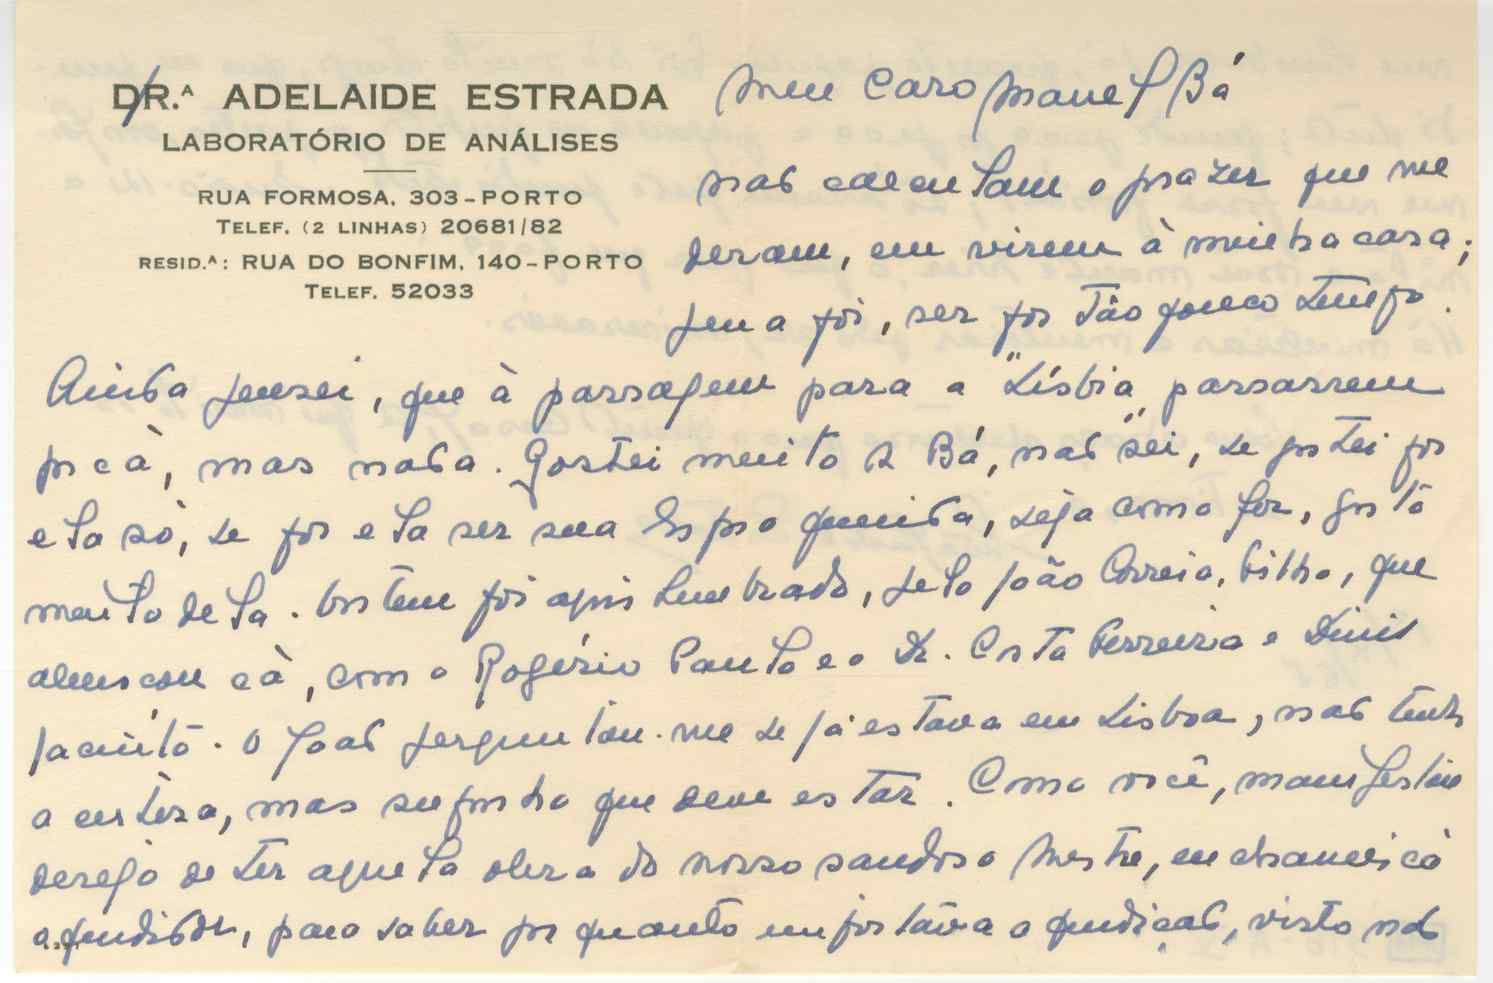 DR.ᴬ ADELAIDE ESTRADA
LABORATÓRIO DE ANÁLISES
RUA FORMOSA, 303-PORTO
TELEF. (2 LINHAS) 20681/82
RESID.ᴬ: RUA DO BONFIM, 140-PORTO
TELEF. 52033
Meu Caro Manuel Bá
não calculam o prazer que me
deram, em virem à minha casa;
pena foi, ser por tão pouco tempo.
Ainda pensei, que à passagem para a "Lísbia" passassem
por cà, mas nada. Gostei muito da Bá, não sei, se gostei por
ela sò, se por ela ser sua Esposa querida, seja como for, gosto
muito dela. Ontem foi aqui lembrado, pelo João Correia, filho, que
almoçou cà, com o Rogério Paulo e o Dr. Costa Ferreira e Dinis
Jacinto. O João perguntou-me se já estava em Lisboa, não tinha
a certeza, mas suponho que deve estar. Como você, manifestou
desejo de ter aquela obra do nosso saudoso Mestre, eu chamei cà
o fundidor, para saber por quanto importava a fundição, visto não